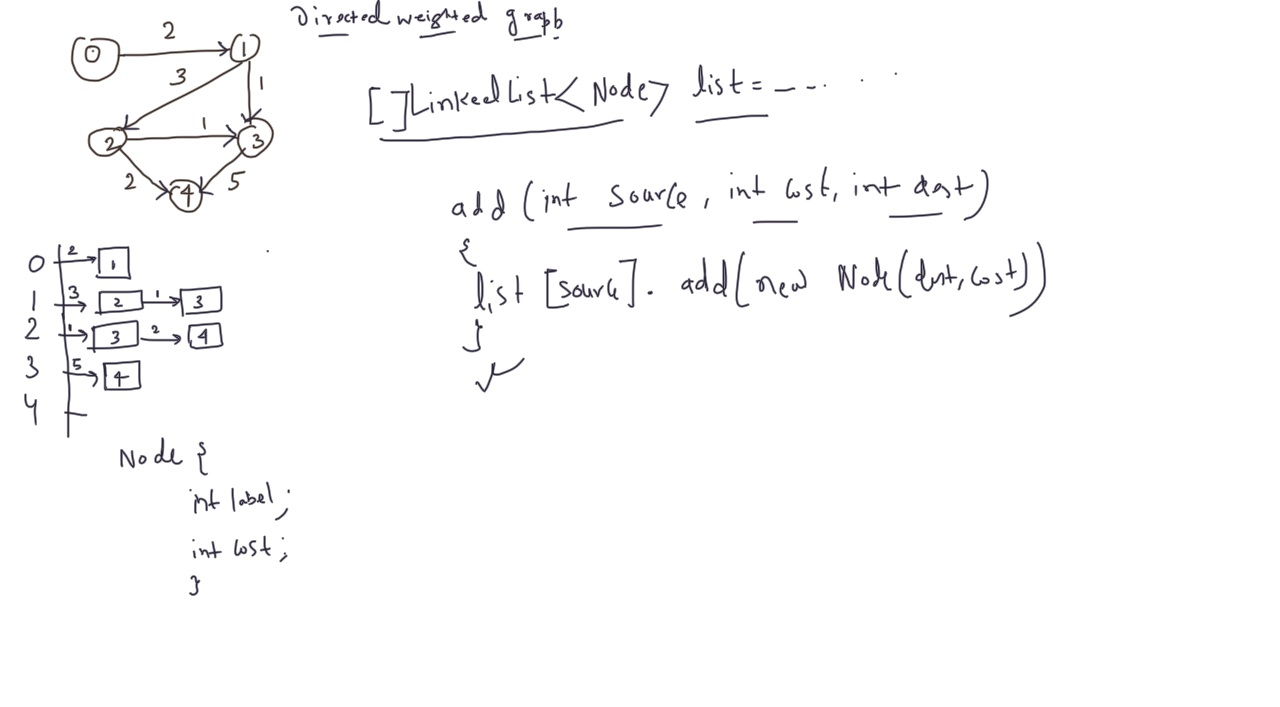 Directed weighted graph
0 2 1
3 1
2 1 3
2 4 5
[]LinkedList<Node> list = - - . . .
add (int source, int cost, int dest)
{
list [source]. add(new Node(dest, cost))
}
0 2 1
1 3 2 1 3
2 1 3 2 4
3 5 4
4
Node {
int label;
int cost;
}